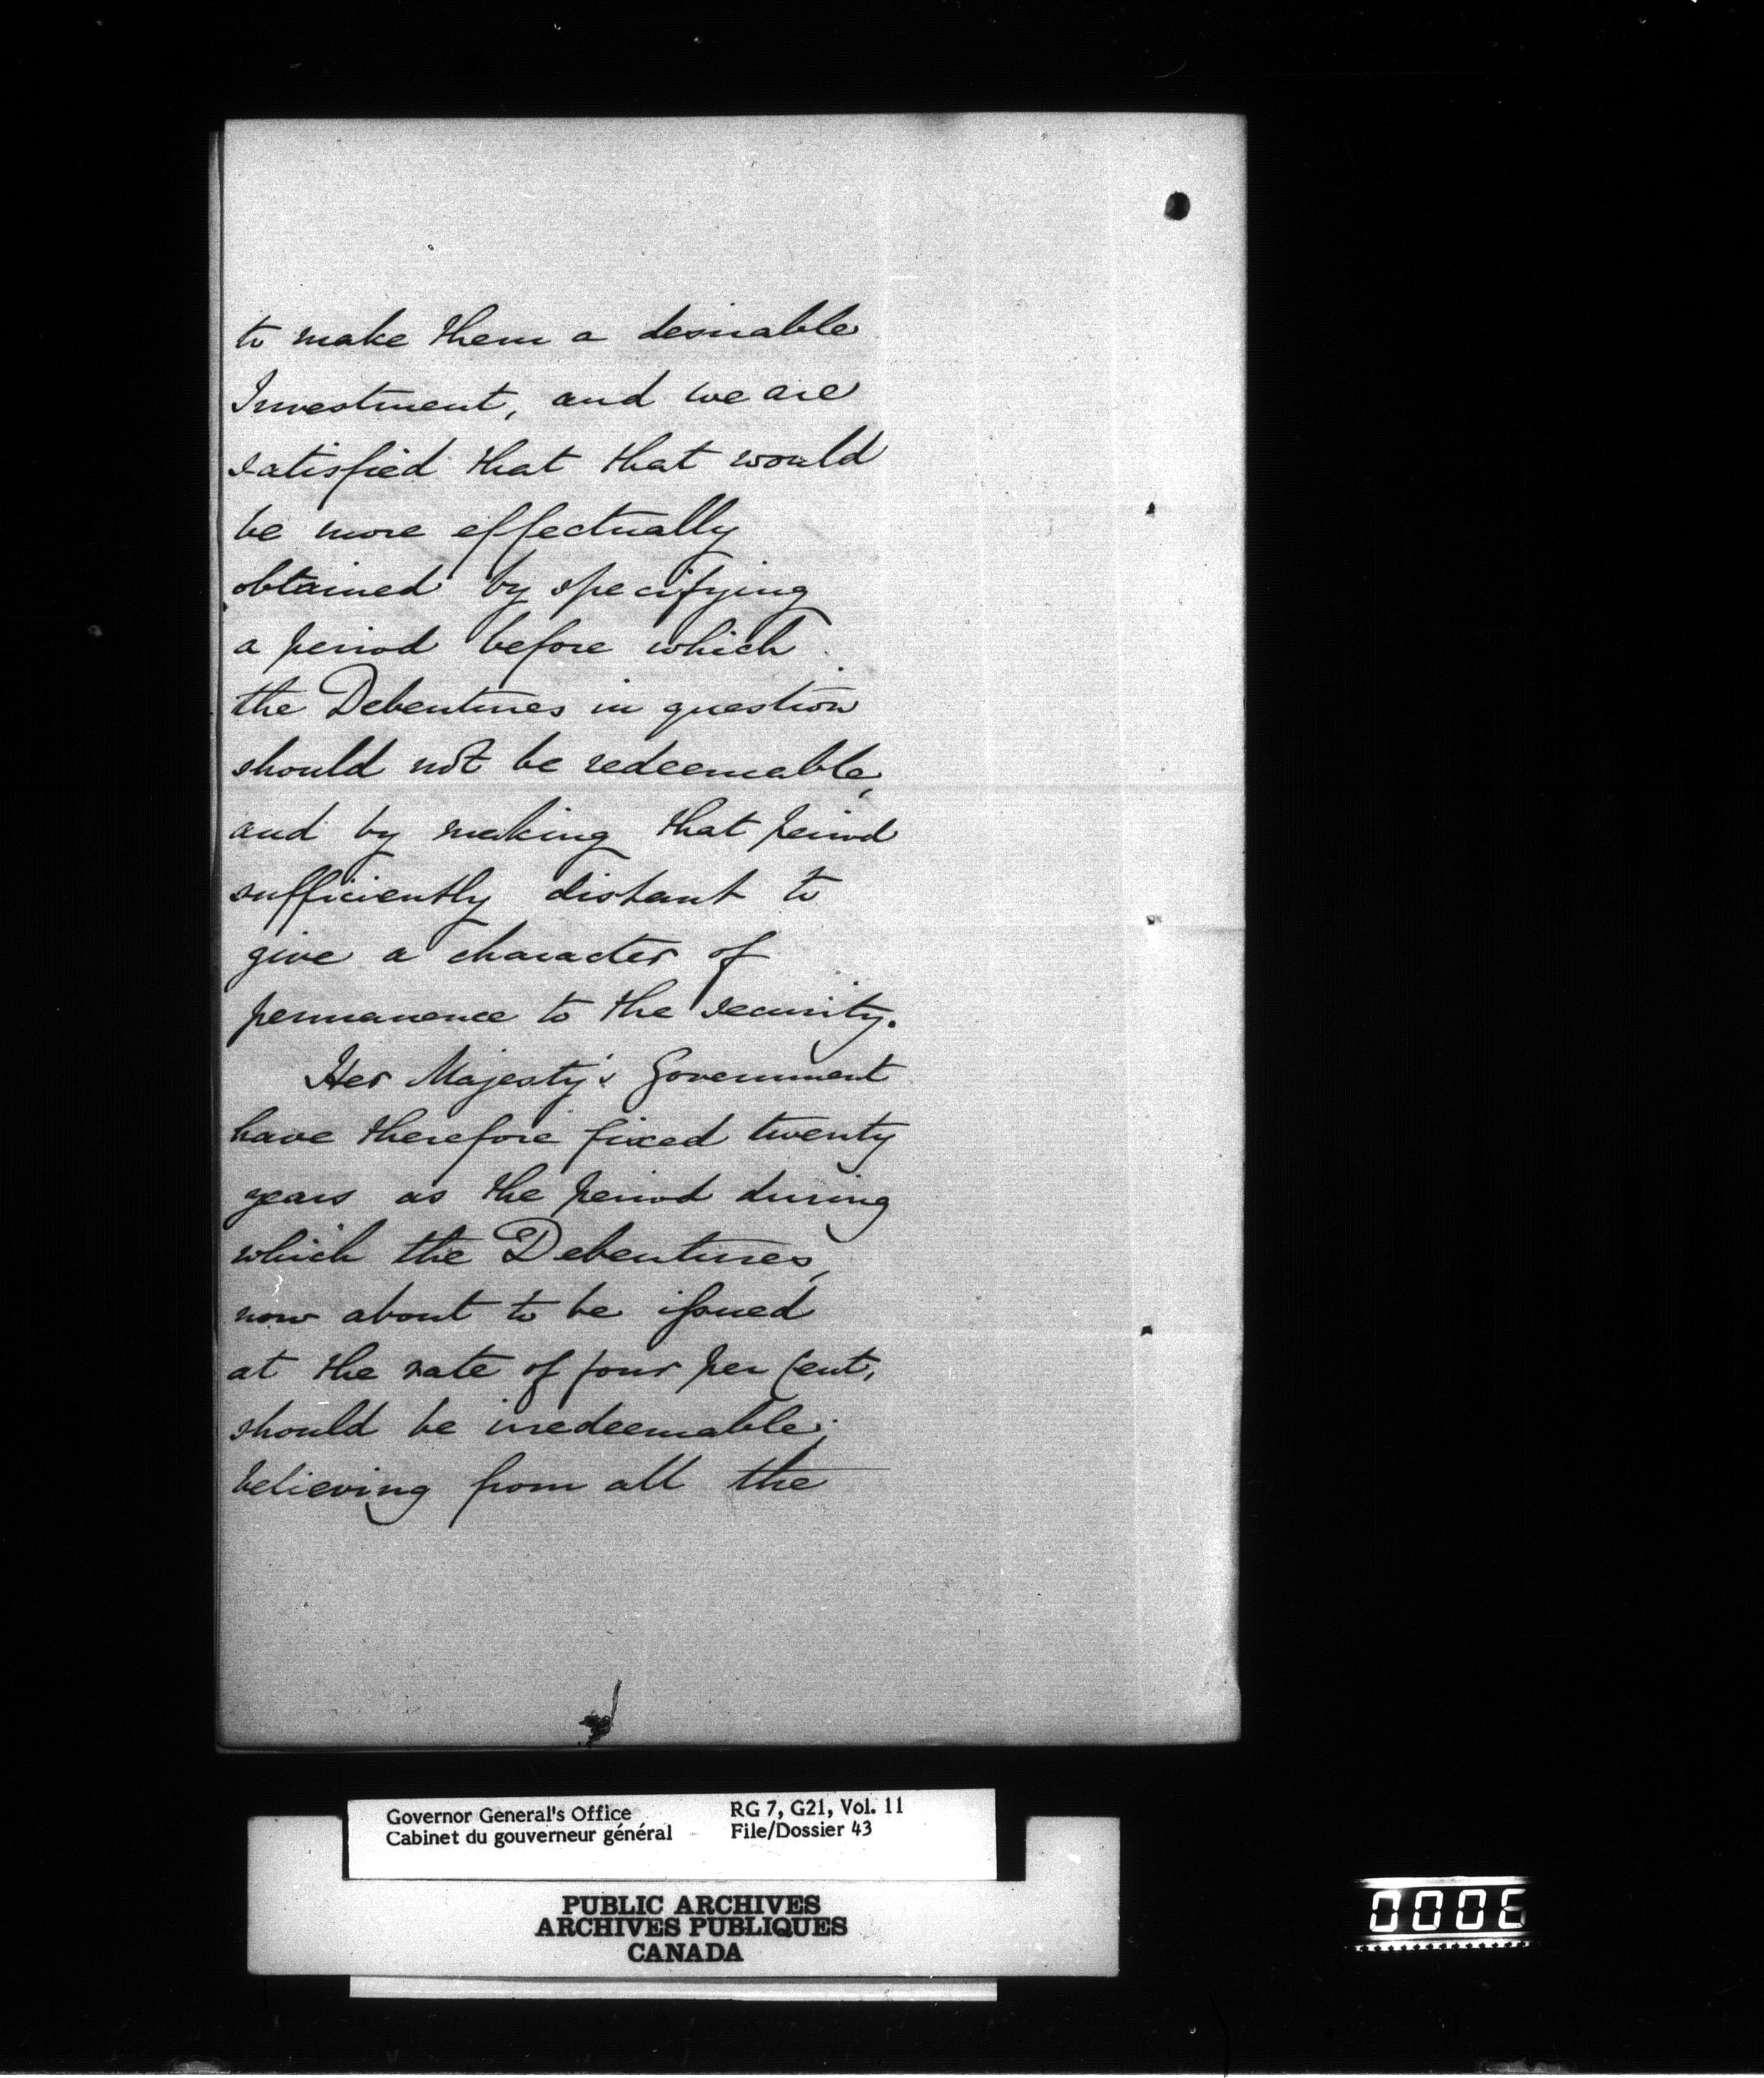 to make them a desirable
Investment, and we are
satisfied that that would
be more effectually
obtained by specifying
a period before which
the Debentures in question
should not be redeemable,
and by making that period
sufficiently distant to
give a character of
permanence to the security.
Her Majesty's Government
have therefore fixed twenty
years as the period during
which the Debentures,
now about to be issued
at the rate of four per Cent,
should be irredeemable;
believing from all the
Governor General's Office
Cabinet du gouverneur général
RG 7, G21, Vol. 11
File/Dossier 43
PUBLIC ARCHIVES
ARCHIVES PUBLIQUES
CANADA
0006